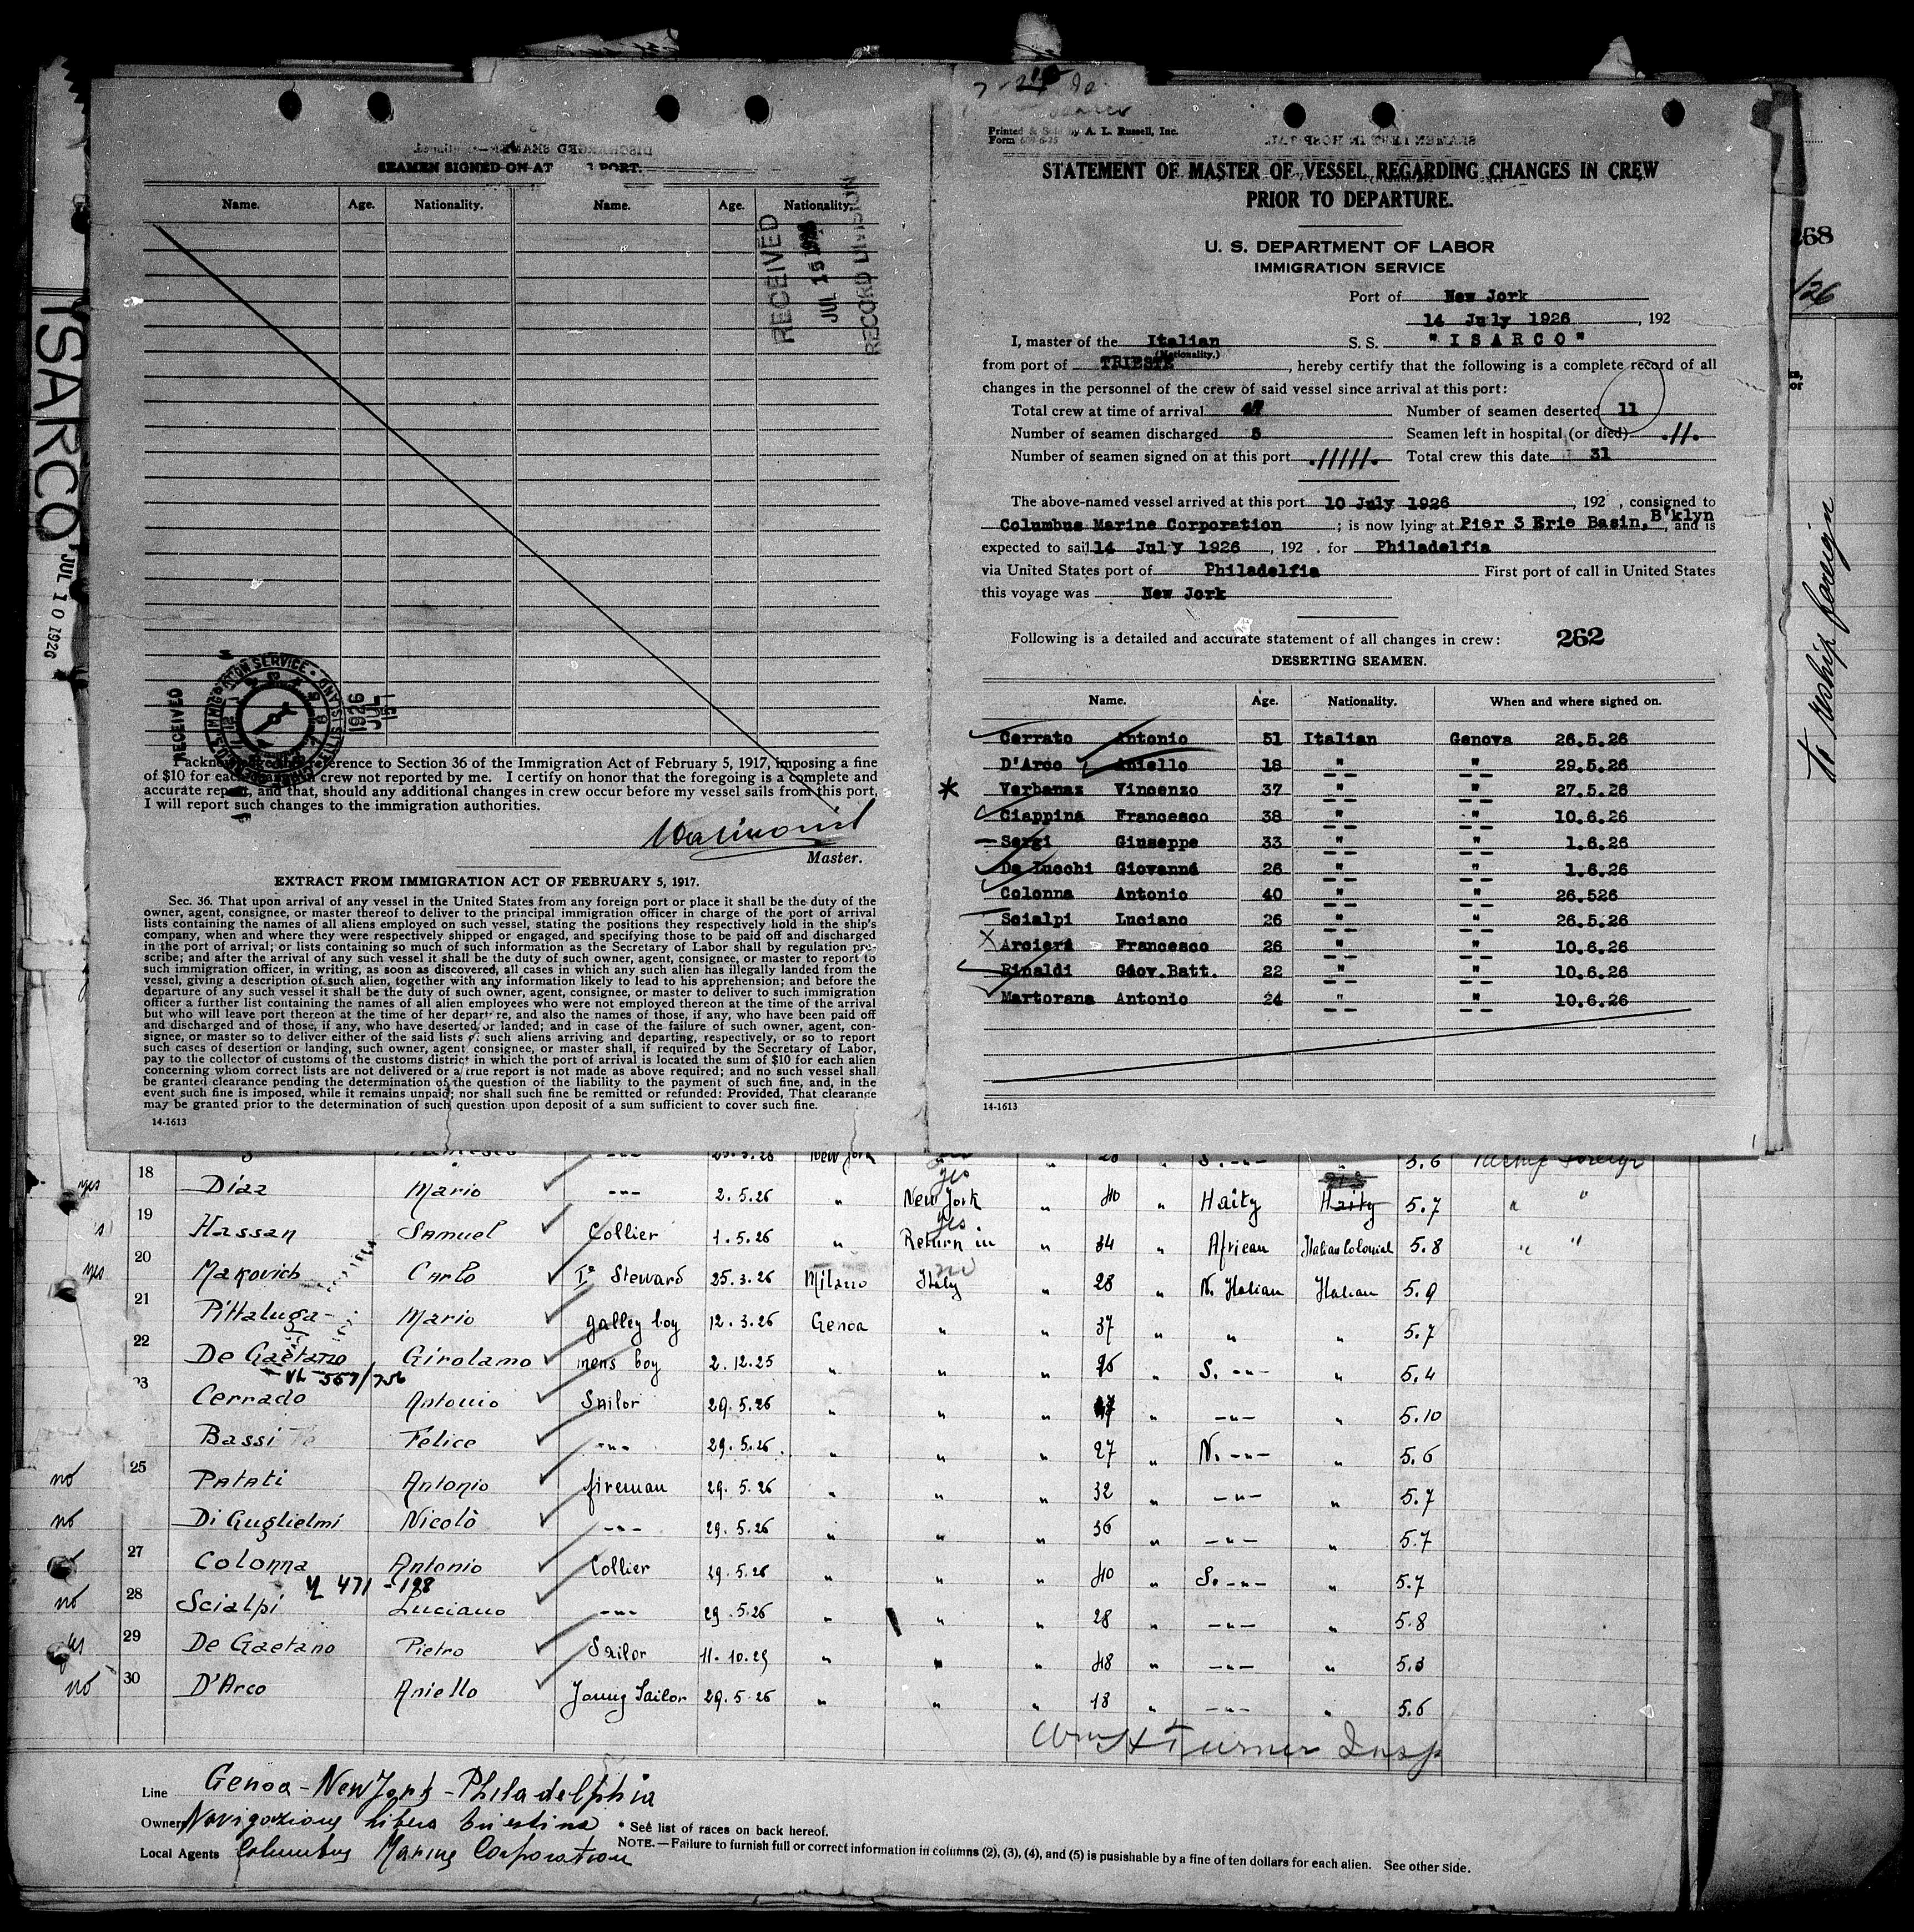 ISARCO
JUL 10 1926
SEAMEN SIGNED ON AT PORT.
Name. Age. Nationality. Name. Age. Nationality.
RECEIVED
JUL 15 1926
RECORD DIVISION
RECEIVED
1926
JUL
I acknowledge reference to Section 36 of the Immigration Act of February 5, 1917, imposing a fine
of $10 for each crew not reported by me. I certify on honor that the foregoing is a complete and
accurate report, and that, should any additional changes in crew occur before my vessel sails from this port,
I will report such changes to the immigration authorities.
Master.
EXTRACT FROM IMMIGRATION ACT OF FEBRUARY 5, 1917.
Sec. 36. That upon arrival of any vessel in the United States from any foreign port or place it shall be the duty of the
owner, agent, consignee, or master thereof to deliver to the principal immigration officer in charge of the port of arrival
lists containing the names of all aliens employed on such vessel, stating the positions they respectively hold in the ship's
company, when and where they were respectively shipped or engaged, and specifying those to be paid off and discharged
in the port of arrival; or lists containing so much of such information as the Secretary of Labor shall by regulation pre-
scribe; and after the arrival of any such vessel it shall be the duty of such owner, agent, consignee, or master to report to
such immigration officer, in writing, as soon as discovered, all cases in which any such alien has illegally landed from the
vessel, giving a description of such alien, together with any information likely to lead to his apprehension; and before the
departure of any such vessel it shall be the duty of such owner, agent, consignee, or master to deliver to such immigration
officer a further list containing the names of all alien employees who were not employed thereon at the time of the arrival
but who will leave port thereon at the time of her departure, and also the names of those, if any, who have been paid off
and discharged and of those, if any, who have deserted or landed; and in case of the failure of such owner, agent, con-
signee, or master so to deliver either of the said lists of such aliens arriving and departing, respectively, or so to report
such cases of desertion or landing, such owner, agent, consignee, or master shall, if required by the Secretary of Labor,
pay to the collector of customs of the customs district in which the port of arrival is located the sum of $10 for each alien
concerning whom correct lists are not delivered or a true report is not made as above required; and no such vessel shall
be granted clearance pending the determination of the question of the liability to the payment of such fine, and, in the
event such fine is imposed, while it remains unpaid; nor shall such fine be remitted or refunded: Provided, That clearance
may be granted prior to the determination of such question upon deposit of a sum sufficient to cover such fine.
14-1613
Printed & Sold by A. L. Russell, Inc.
Form 689 6-25
STATEMENT OF MASTER OF VESSEL REGARDING CHANGES IN CREW
PRIOR TO DEPARTURE.
U. S. DEPARTMENT OF LABOR
IMMIGRATION SERVICE
Port of New Jork
14 July 1926, 192
I, master of the Italian S. S. "ISARCO"
(Nationality.)
from port of TRIESTE, hereby certify that the following is a complete record of all
changes in the personnel of the crew of said vessel since arrival at this port:
Total crew at time of arrival 47 Number of seamen deserted 11
Number of seamen discharged 5 Seamen left in hospital (or died) .//.
Number of seamen signed on at this port ./////. Total crew this date 31
The above-named vessel arrived at this port 10 July 1926, 192 , consigned to
Columbus Marine Corporation ; is now lying at Pier 3 Erie Basin, B'klyn, and is
expected to sail 14 July 1926, 192 . for Philadelfia
via United States port of Philadelfia First port of call in United States
this voyage was New Jork
Following is a detailed and accurate statement of all changes in crew: 262
DESERTING SEAMEN.
Name. Age. Nationality. When and where signed on.
Cerrato Antonio 51 Italian Genova 26.5.26
D'Arco Aniello 18 " " 29.5.26
* Verbanaz Vincenzo 37 " " 27.5.26
Ciappina Francesco 38 " " 10.6.26
Sergi Giuseppe 33 " " 1.6.26
De Lucchi Giovanni 26 " " 1.6.26
Colonna Antonio 40 " " 26.526
Scialpi Luciano 26 " " 26.5.26
X Arcieri Francesco 26 " " 10.6.26
Rinaldi Giov.Batt. 22 " " 10.6.26
Martorana Antonio 24 " " 10.6.26
14-1613
268
/26
To reship foreign
yes 18 Díaz Mario -"- 2.5.26 " New York yes " 40 " Haity Haity 5.7 " "
19 Hassan Samuel Collier 1.5.26 " Return in yes " 34 " African Italian Colonial 5.8 " "
yes 20 Makovich Carlo I° Steward 25.3.26 Milano Italy no " 28 " N. Italian Italian 5.9
21 Pittaluga Mario galley boy 12.3.26 Genoa " " 37 " " " 5.7
22 De Gaetano Girolamo mens boy 2.12.25 " " " 26 " S. -"- " 5.4
VL 567/756
23 Cerrado Antonio Sailor 29.5.26 " " " 47 " -"- " 5.10
Bassi Felice -"- 29.5.26. " " " 27 " N. -"- " 5.6
no 25 Patati Antonio fireman 29.5.26 " " " 32 " -"- " 5.7
no Di Guglielmi Nicolò -"- 29.5.26 " " " 36 " -"- " 5.7
27 Colonna Antonio Collier 29.5.26 " " " 40 " S. -"- " 5.7
471 - 198
no 28 Scialpi Luciano -"- 29.5.26 " " " 28 " -"- " 5.8
yes 29 De Gaetano Pietro Sailor 11.10.25 " " " 48 " -"- " 5.3
no 30 D'Arco Aniello Joung Sailor 29.5.26 " " " 18 " -"- " 5.6
Wm H Turner Insp
Line Genoa - New Jork - Philadelphia
Owners Navigazione Libera Triestina * See list of races on back hereof.
Local Agents Columbus Marine Corporation NOTE.—Failure to furnish full or correct information in columns (2), (3), (4), and (5) is punishable by a fine of ten dollars for each alien. See other side.